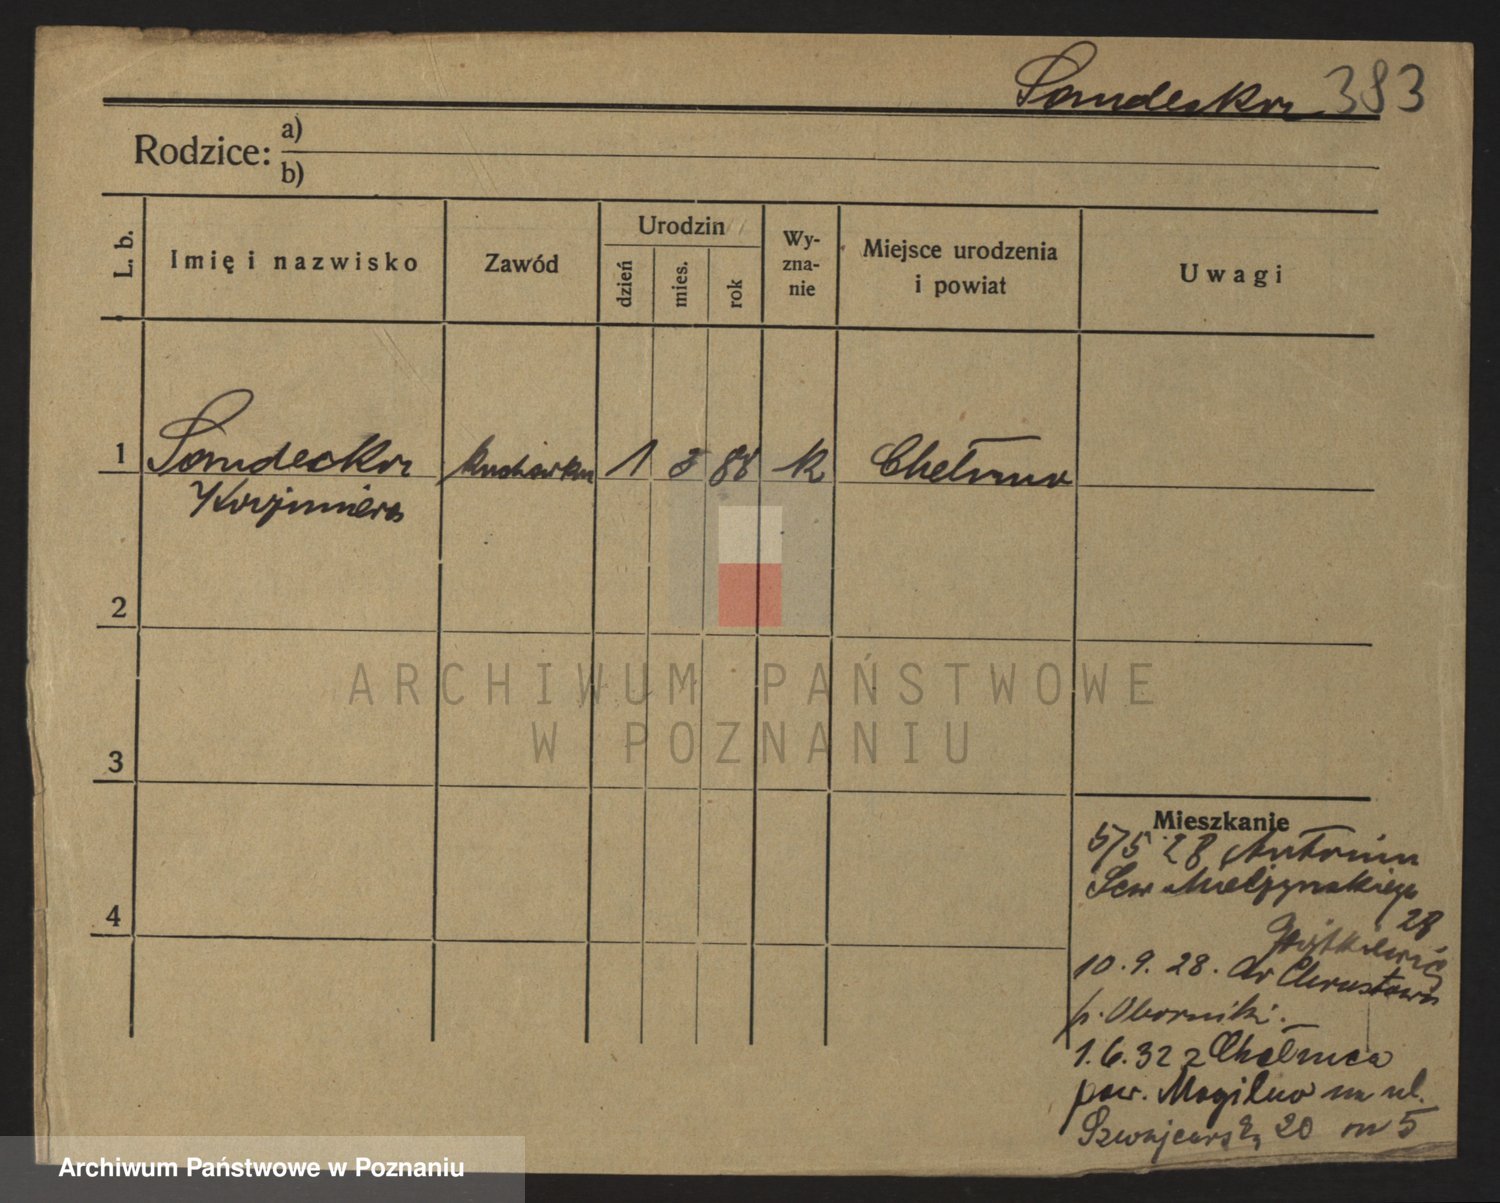 Sandecka 383
Rodzice: a)
b)
L. b.
Imię i nazwisko
Zawód
Urodzin
dzień
mies.
rok
Wy-
zna-
nie
Miejsce urodzenia
i powiat
Uwagi
1 Sandecka kucharka 1 3 88 k Chełmno
Kazimiera
2
3
4
Mieszkanie
5/5 28 Antonin
Sew Mielżyńskiego
28
10.9.28. do Chrustowa
p. Oborniki.
1.6.32 z Chełmca
pow. Mogilno na ul.
Szwajcarską 20 m 5
ARCHIWUM PAŃSTWOWE
W POZNANIU
Archiwum Państwowe w Poznaniu